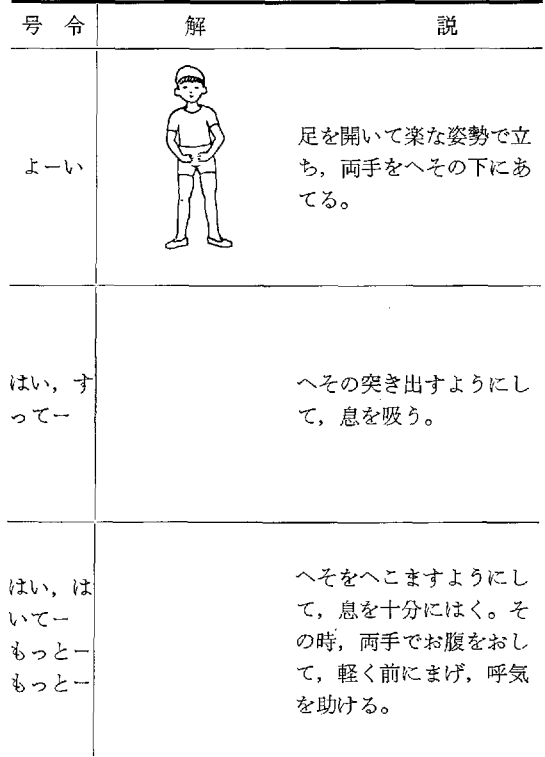 号 令 解 説
よーい
足を開いて楽な姿勢で立
ち，両手をへその下にあ
てる。
はい，す
ってー
へその突き出すようにし
て，息を吸う。
はい，は
いてー
もっとー
もっとー
へそをへこますようにし
て，息を十分にはく。そ
の時，両手でお腹をおし
て，軽く前にまげ，呼気
を助ける。